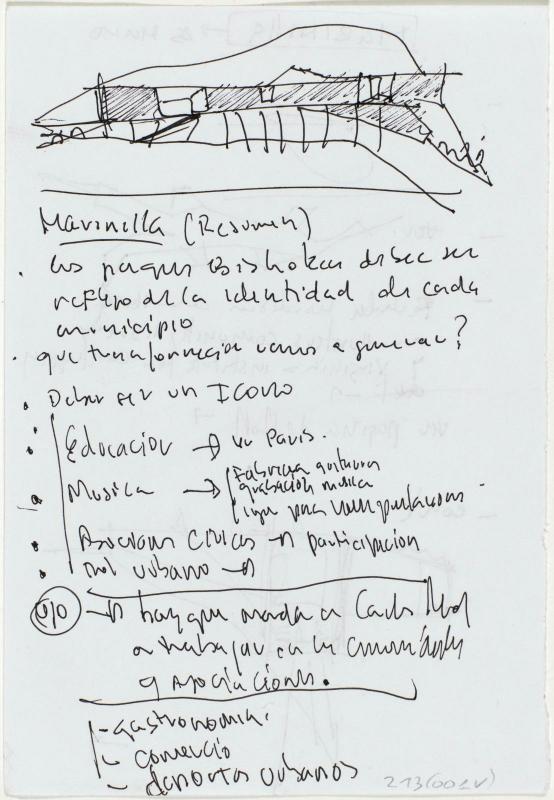 Marinilla (Resumen)
· Los parques Biblioteca deben ser
reflejo de la identidad de cada
municipio
· que transformacion vamos a generar?
· Deben ser un Icono
· Educacion → 
· Musica → Fabrica guitarra
grabacion musica
lugar para
· Asociaciones Civicas → participacion
· urbano →
OJO → hay que mandar a Carlos
a trabajar en las comunidades
y asociaciones.
- gastronomia.
- comercio
- deportes urbanos
213(001v)